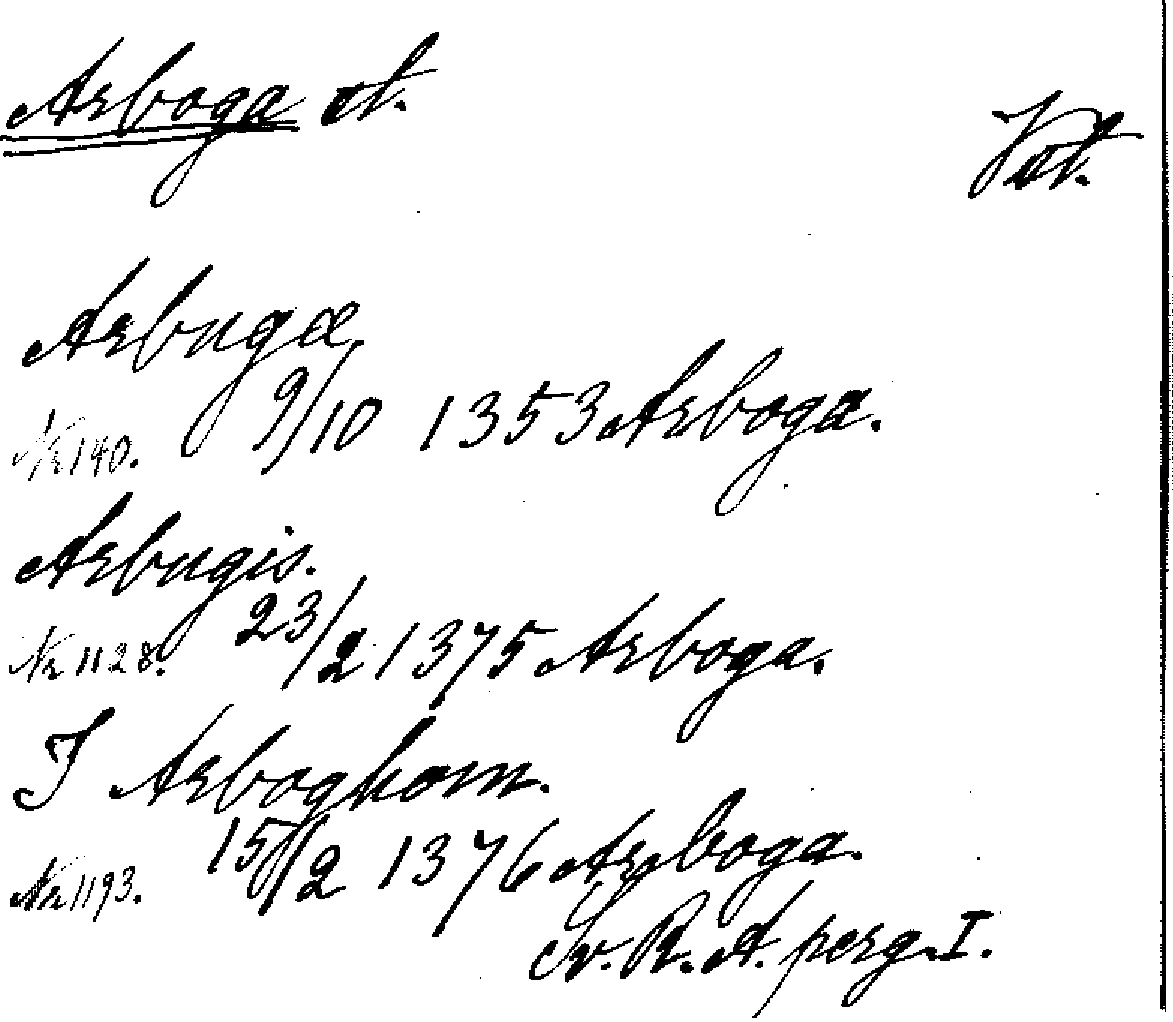 Arboga st.
Vst.
Arbugæ
Nr 140. 9/10 1353 Arboga.
Arbugis.
Nr 1128. 23/2 1375 Arboga.
I Arboghom.
Nr 1193. 15/2 1376 Arboga.
Sv. R. A. perg. I.